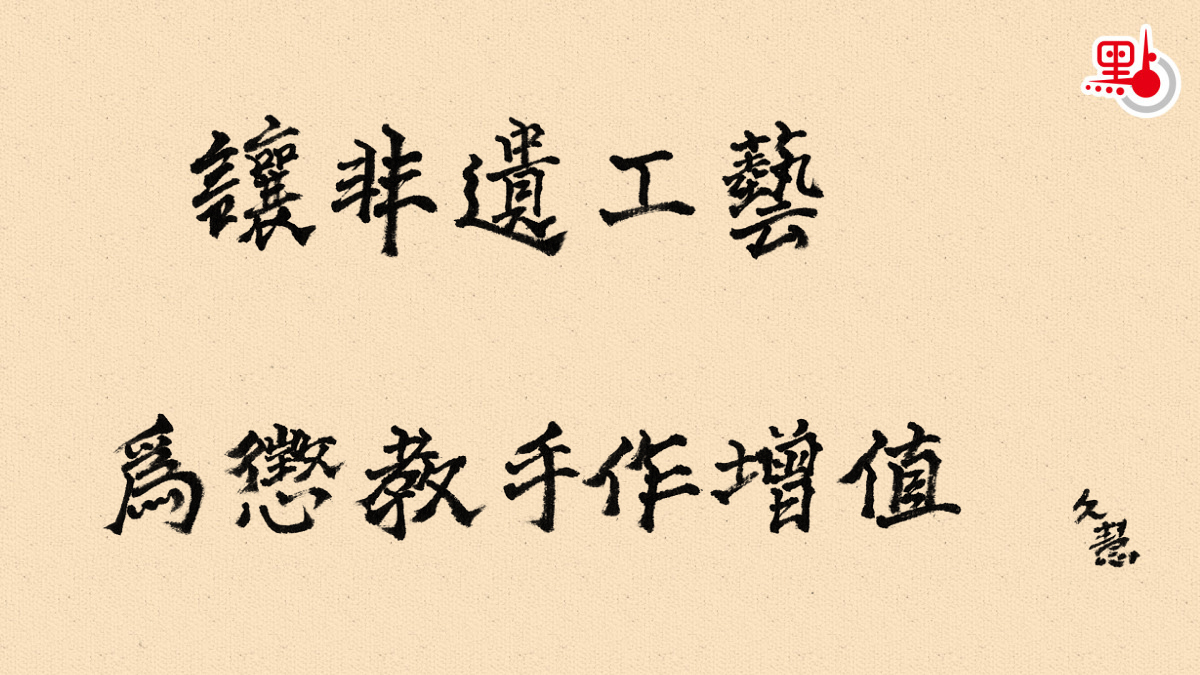 點
讓非遺工藝
為懲教手作增值
文慧